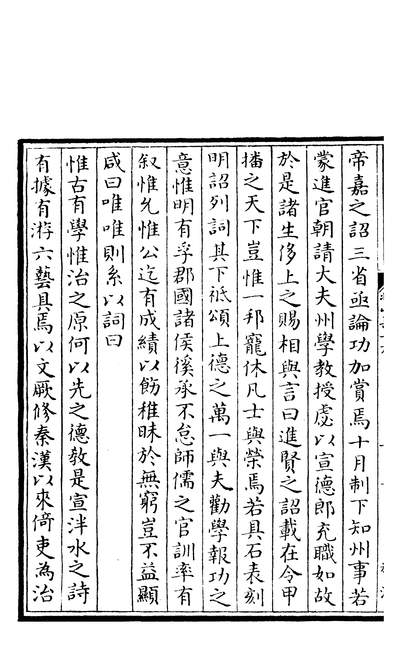 帝嘉之詔三省亟論功加賞焉十月制下知州事若
蒙進官朝請大夫州學教授虔以宣德郎充職如故
於是諸生侈上之賜相與言曰進賢之詔載在令甲
播之天下豈惟一邦寵休凡士與榮焉若具石表刻
明詔列詞其下祗頌上德之萬一與夫勸學報功之
意惟明有孚郡國諸侯徯承不怠師儒之官訓率有
叙惟允惟公迄有成績以飭稚昧於無窮豈不益顯
咸曰唯唯則系以詞曰
惟古有學惟治之原何以先之德教是宣泮水之詩
有據有游六藝具焉以文厥修秦漢以來倚吏為治